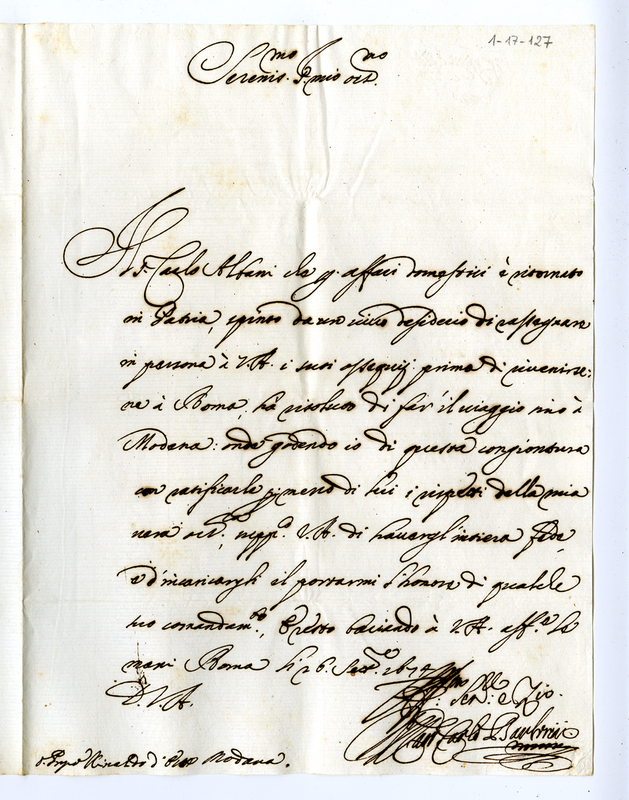 1-17-127
Serenis.mo S. mio oss.mo
Il S. Carlo Albani che p. affari domestici è ritornato
in Patria, spinto da un vivo desiderio di rassegnare
in persona à V.A. i suoi ossequij prima di rivenirse:
ne à Roma, hà risoluto di far' il viaggio sino à
Modena: onde godendo io di questa congiontura
con ratificarle p. mezzo di lui i rispetti della mia
vera V.A. di havergl'intiera fede,
e d'incaricargli il portarmi l'honore di qualche
suo comandam.to, E resto baciando à V.A. aff.te le
mani Roma li 26
D.V.A.
Ser.re e Zio
Carlo Barberini
Rinaldo d'Este Modana.